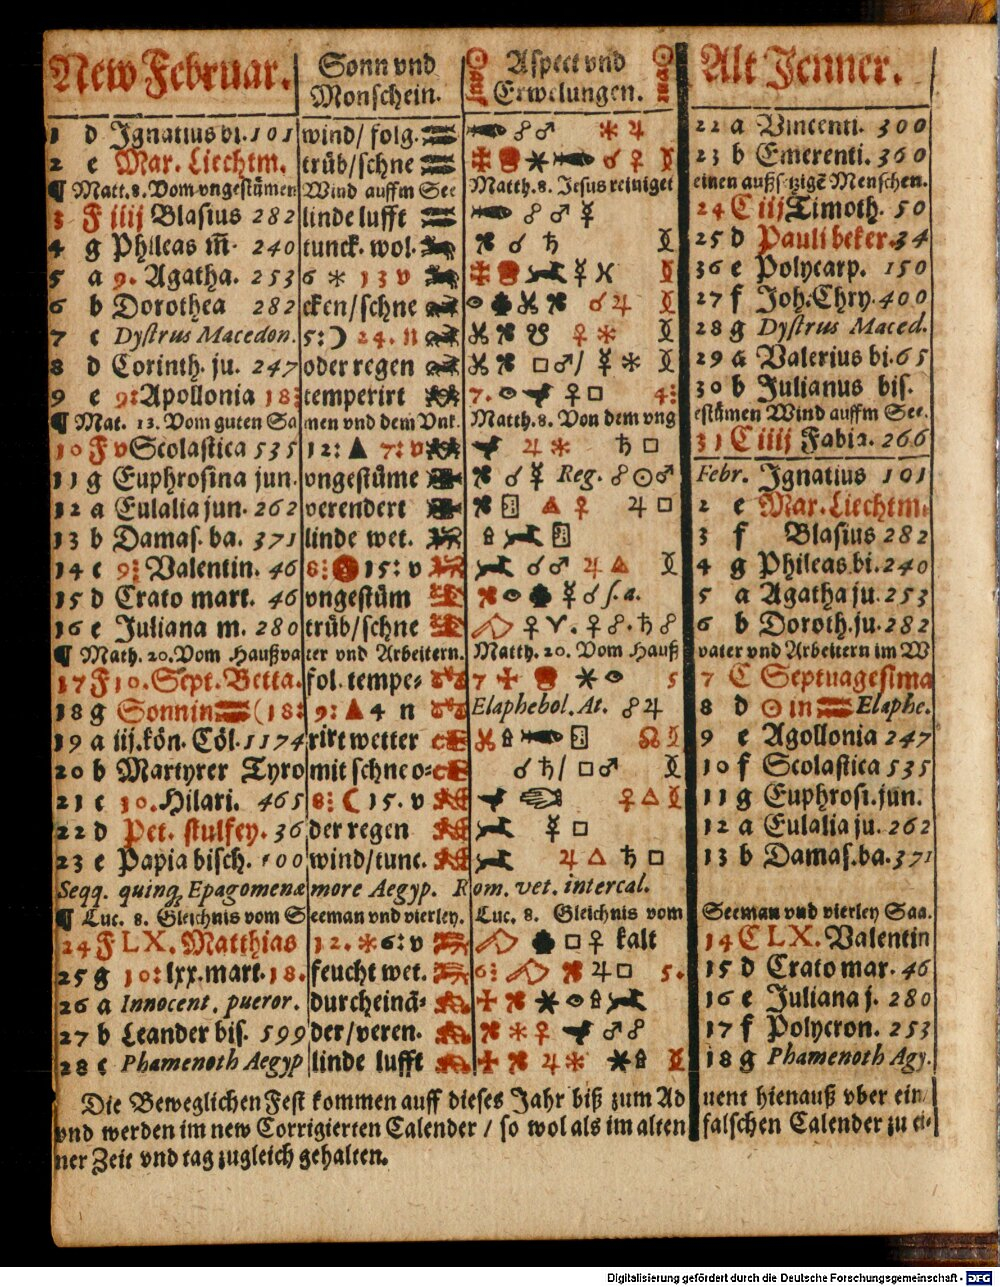 New Februar. Sonn vnd Aspect vnd Alt Jenner.
Monschein. Erwelungen.
1 d Ignatius bi. 101 wind/ folg. ☍ ♂ ✱ ♃ 22 a Vincenti. 300
2 e Mar. Liechtm. trüb/schne ☌ ♀ 23 b Emerenti. 360
¶ Matt. 8. Vom vngestümen Wind auffm See Matth. 8. Jesus reiniget einen außsetzigē Menschen.
3 F iiij Blasius 282 linde lufft ☍ ♂ ☿ 24 C iij Timoth. 50
4 g Phileas m̄. 240 tunck. wol. ☌ ♄ 25 d Pauli beker. 34
5 a 9. Agatha. 253 6 ✱ 13 v ☿ 36 e Polycarp. 150
6 b Dorothea 282 cken/schne ☌ ♃ 27 f Joh. Chry. 400
7 c Dystrus Macedon. 5: ☽ 24. n ☋ ♀ ✱ 28 g Dystrus Maced.
8 d Corinth. ju. 247 oder regen □ ♂/ ☿ ✱ 29 a Valerius bi. 65
9 e 9: Apollonia 18: temperirt 7. ♀ □ 4: 30 b Julianus bis.
¶ Mat. 13. Vom guten Sa men vnd dem Vnk. Matth. 8. Von dem vng estümen Wind auffm See.
10 F v Scolastica 535 12: ▲ 7: v ♃ ✱ ♄ □ 31 C iiij Fabia. 266
11 g Euphrosina jun. vngestüme ☌ ☿ Reg. ☍ ☉ ♂ Febr. Ignatius 101
12 a Eulalia jun. 262 verendert △ ♀ ♃ □ 2 e Mar. Liechtm.
13 b Damas. ba. 371 linde wet. 3 f Blasius 282
14 c 9: Valentin. 46 8: 15: v ☌ ♂ ♃ △ 4 g Phileas bi. 240
15 d Crato mart. 46 vngestüm ☿ ☌ s. a. 5 a Agatha ju. 253
16 e Juliana m. 280 trüb/schne ♀ ♈. ♀ ☍. ♄ ☍ 6 b Doroth. ju. 282
¶ Math. 20. Vom Haußva ter vnd Arbeitern. Matth. 20. Vom Hauß vater vnd Arbeitern im W
17 F 10. Sept. Betta. fol. tempe= 7 5 7 C Septuagesima
18 g Sonn in ♒ (18: 9: ▲ 4 n Elaphebol. At. ☍ ♃ 8 d ☉ in ♒ Elaphe.
19 a iij. kön. Cöl. 1174 rirt wetter ☊ 9 e Agollonia 247
20 b Martyrer Tyro mit schne o= ☌ ♄/ □ ♂ 10 f Scolastica 535
21 c 10. Hilari. 465 8: ☾ 15. v ♀ △ 11 g Euphrosi. jun.
22 d Pet. stulfey. 36 der regen ☿ □ 12 a Eulalia ju. 262
23 e Papia bisch. 100 wind/tunc. ♃ △ ♄ □ 13 b Damas. ba. 371
Seqq. quinq; Epagomenæ more Aegyp. Rom. vet. intercal.
¶ Luc. 8. Gleichnis vom Seeman vnd vierley. Luc. 8. Gleichnis vom Seeman vnd vierley Saa.
24 F LX. Matthias 12. ✱ 6: v □ ♀ kalt 14 C LX. Valentin
25 g 10: lxx. mart. 18. feucht wet. 6: ♃ □ 5. 15 d Crato mar. 46
26 a Innocent. pueror. durcheinā= 16 e Juliana j. 280
27 b Leander bis. 599 der/veren. ✱ ♀ ♂ ☍ 17 f Polycron. 253
28 c Phamenoth Aegyp linde lufft ♃ ✱ 18 g Phamenoth Agy.
Die Beweglichen Fest kommen auff dieses Jahr biß zum Ad uent hienauß vber ein/
vnd werden im new Corrigierten Calender / so wol als im alten falschen Calender zu ei=
ner Zeit vnd tag zugleich gehalten.
Digitalisierung gefördert durch die Deutsche Forschungsgemeinschaft - DFG